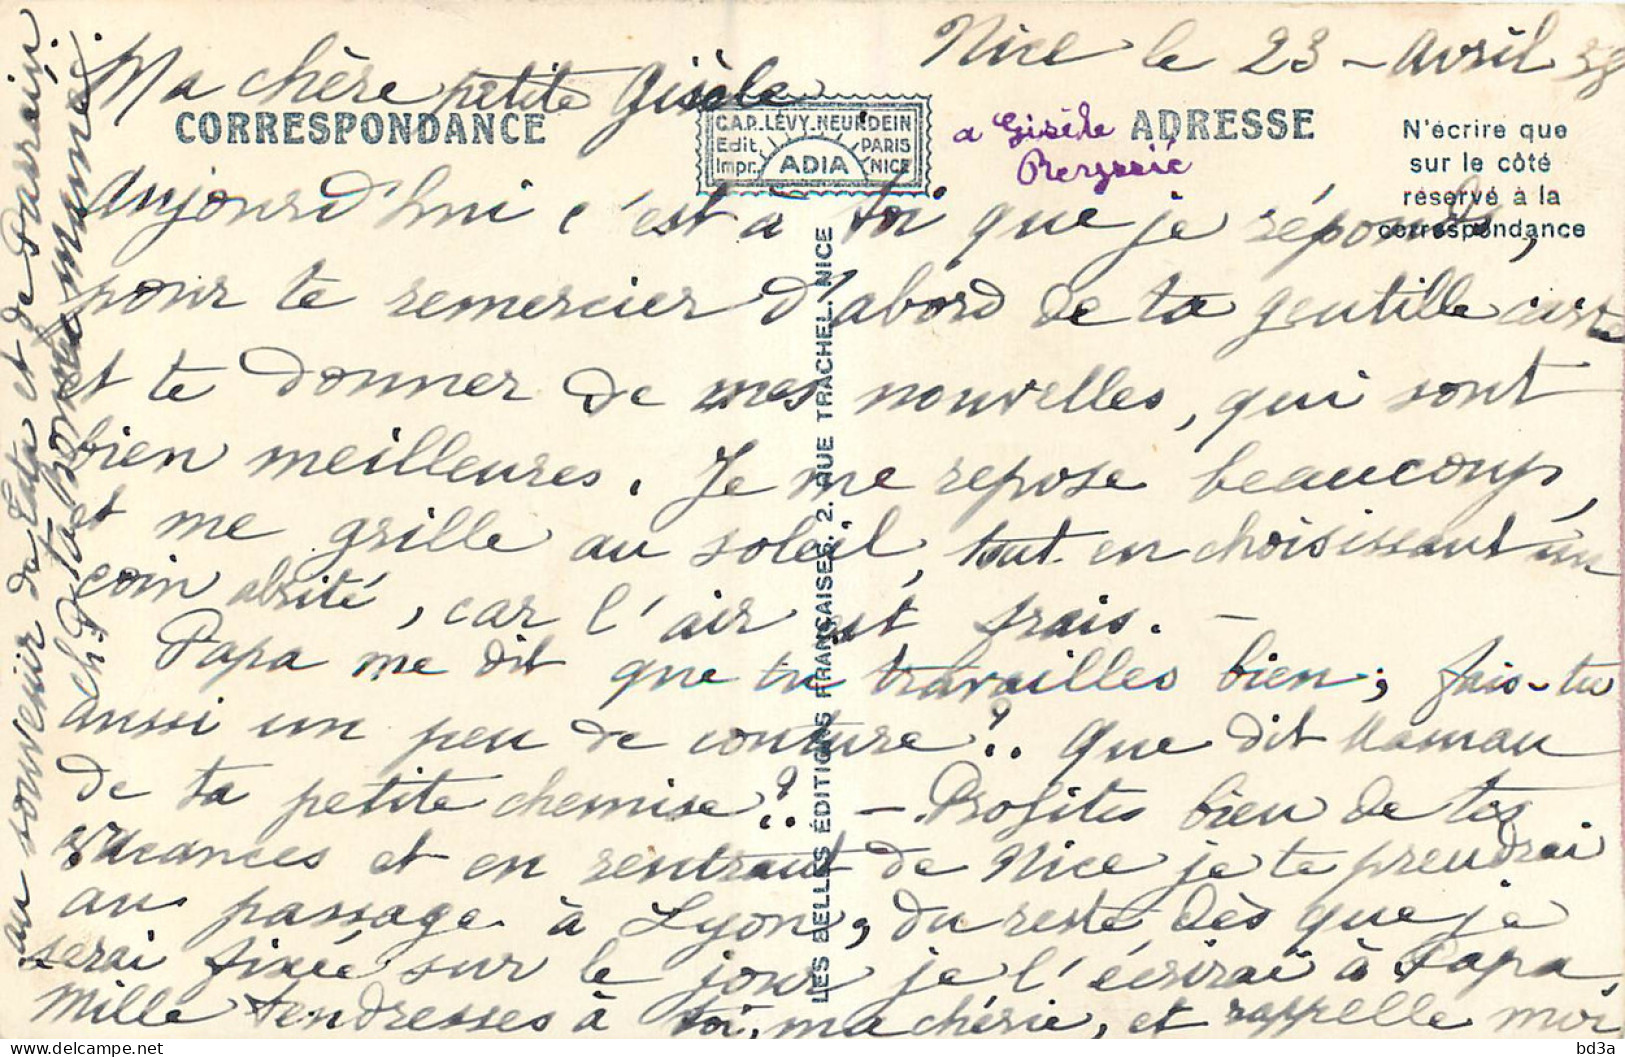 Nice le 23 - Avril 38
Ma chère petite Gisèle
CORRESPONDANCE
C.A.P. LÉVY. NEURDEIN
Edit. PARIS
Impr. ADIA NICE
a Gisèle
ADRESSE
N'écrire que
sur le côté
réservé à la
correspondance
Aujourd'hui c'est à toi que je réponds,
pour te remercier d'abord de ta gentille carte
et te donner de mes nouvelles, qui sont
bien meilleures. Je me repose beaucoup,
et me grille au soleil, tout en choisissant un
coin abrité, car l'air est frais. -
Papa me dit que tu travailles bien; fais-tu
aussi un peu de couture?.. Que dit Maman
de ta petite chemise?.. - Profites bien de tes
vacances et en rentrant de Nice je te prendrai
au passage à Lyon, du reste dès que je
serai fixée sur le jour je l'écrirai à Papa.
Mille tendresses à toi, ma chérie, et rappelle moi
au souvenir de Tata et de Parrain.
Ta Bonne maman
LES BELLES ÉDITIONS FRANÇAISES. 2. RUE TRACHEL. NICE
bd3a